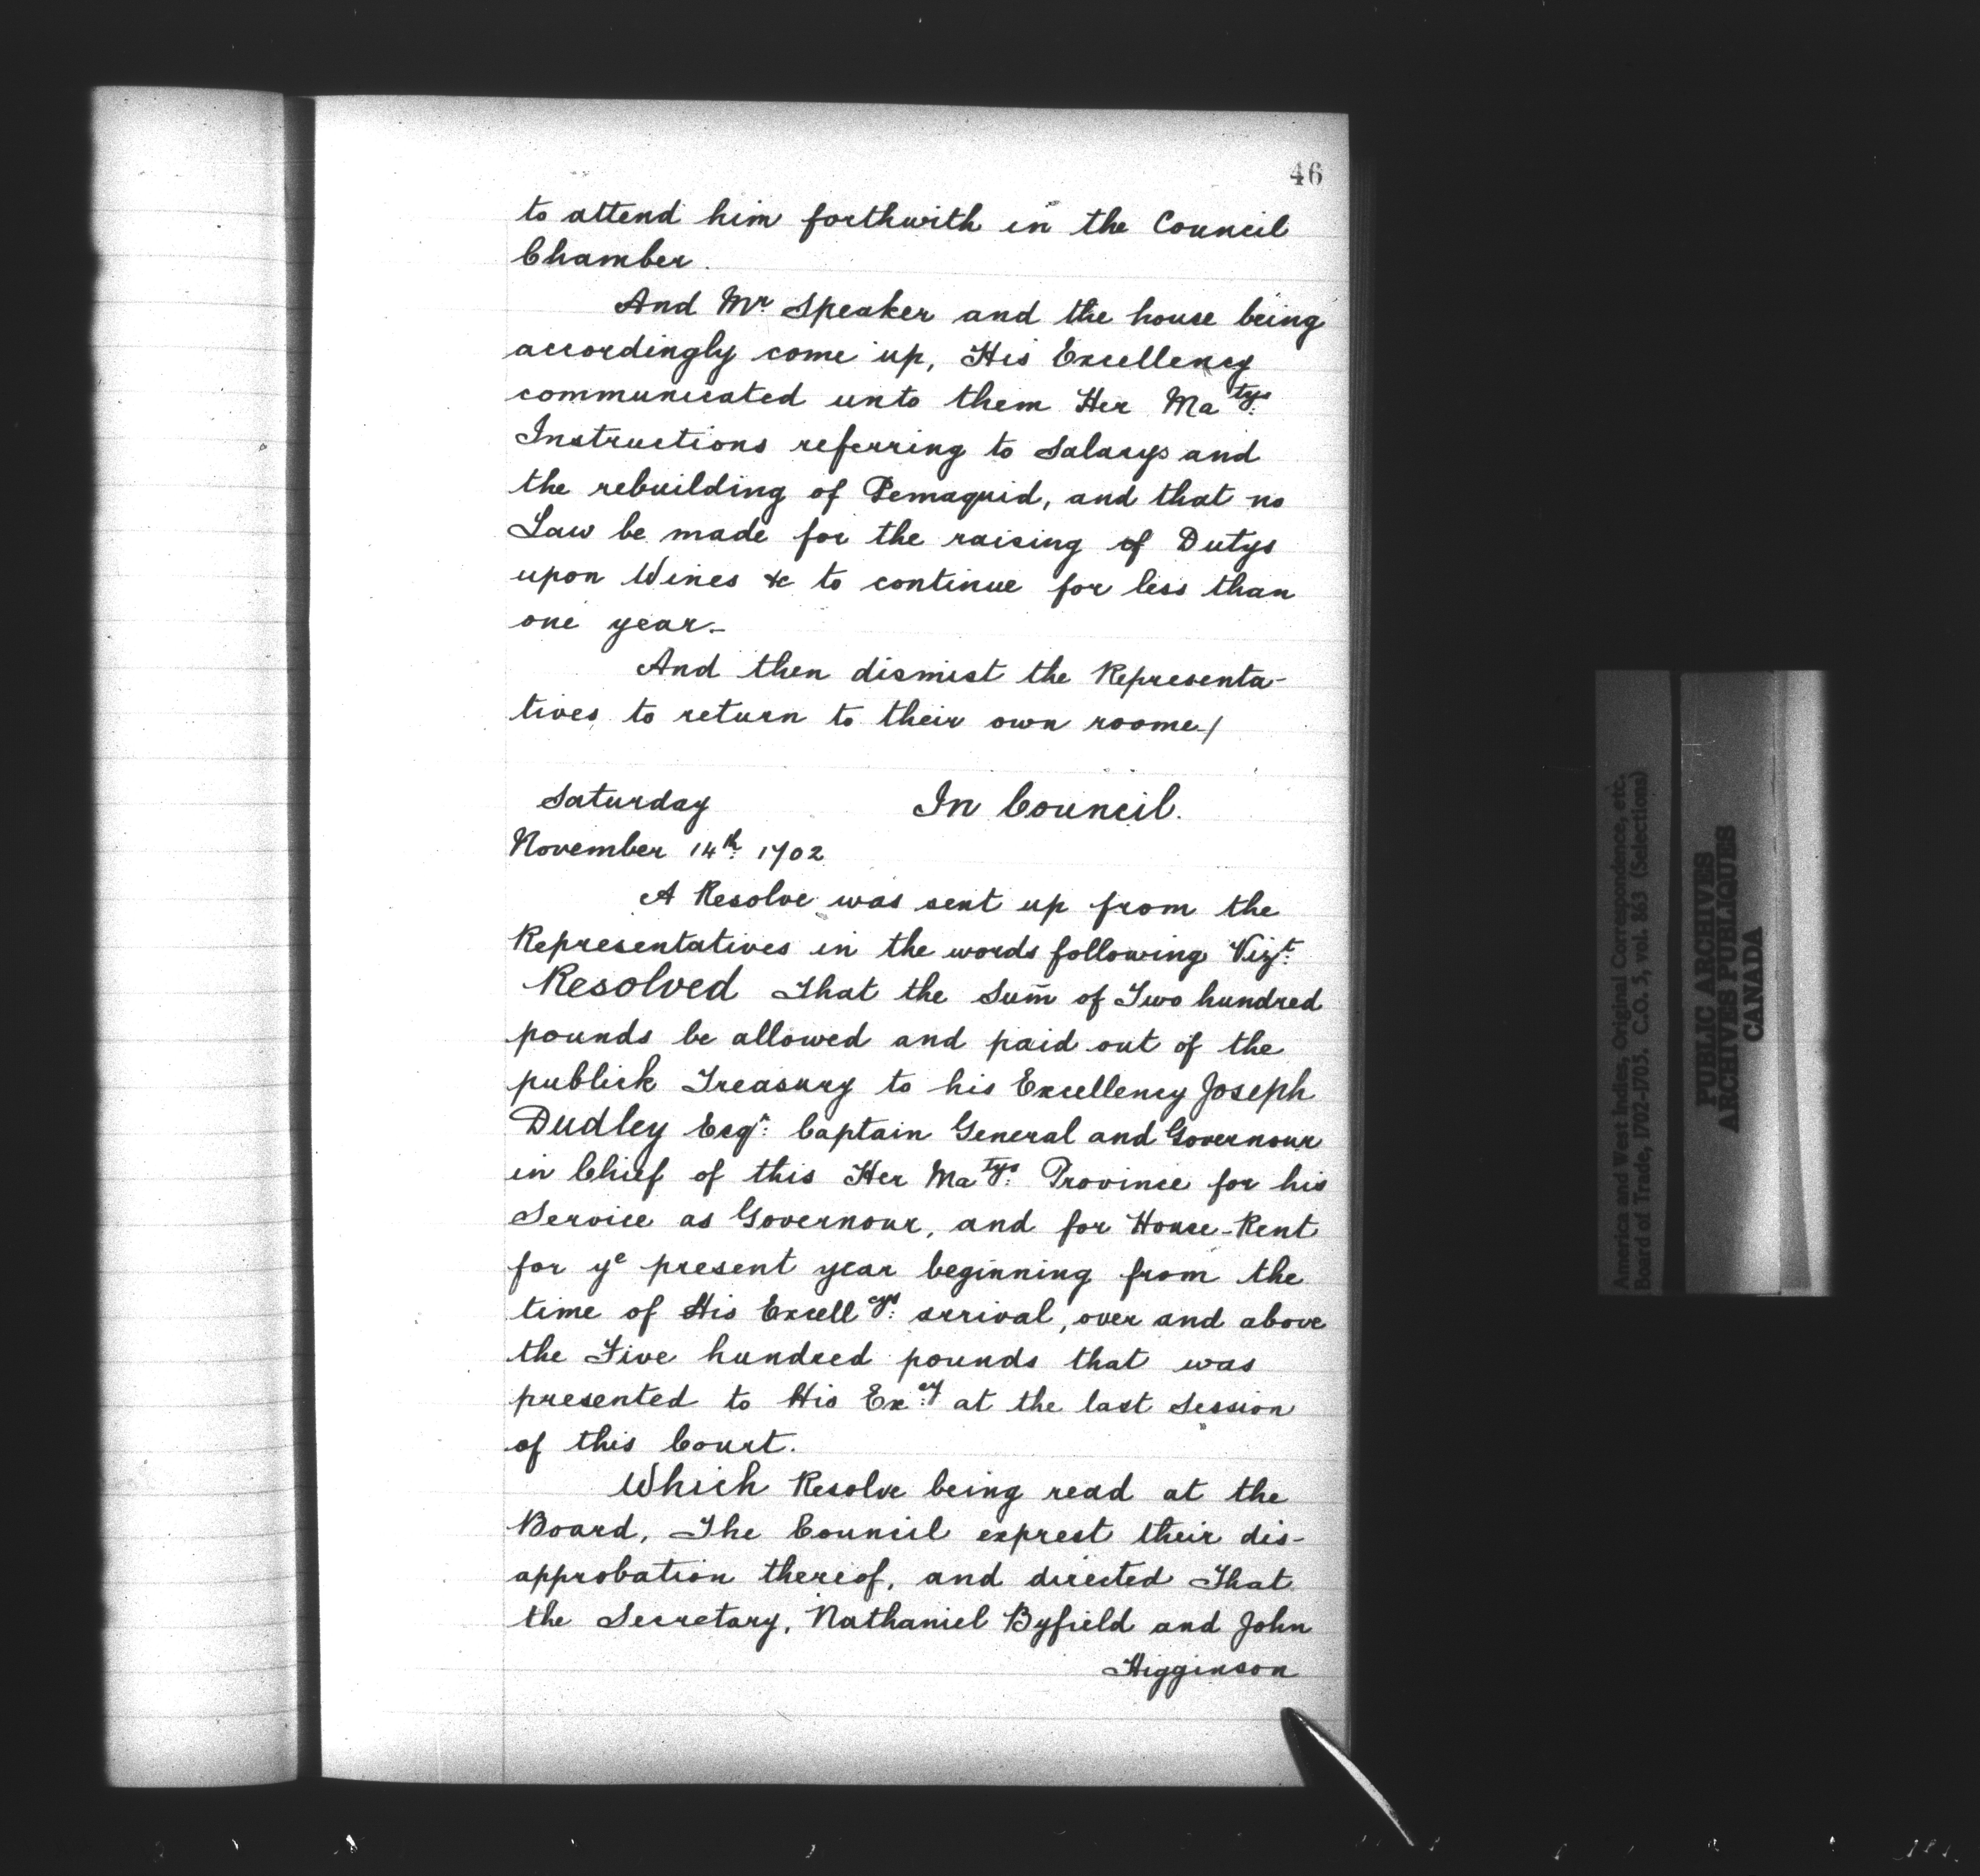 46
to attend him forthwith in the Council
Chamber.
And Mr. Speaker and the house being
accordingly come up, His Excellency
communicated unto them Her Matys:
Instructions referring to Salarys and
the rebuilding of Pemaquid, and that no
Law be made for the raising of Dutys
upon Wines &c to continue for less than
one year.-
And then dismist the Representa-
tives to return to their own roome./
Saturday In Council.
November 14th: 1702
A Resolve was sent up from the
Representatives in the words following Vizt:
Resolved That the Sum̄ of Two hundred
pounds be allowed and paid out of the
publick Treasury to his Excellency Joseph
Dudley Esqr: Captain General and Governour
in Chief of this Her Matys: Province for his
Service as Governour, and for House-Rent
for ye present year beginning from the
time of His Excellcys: arrival, over and above
the Five hundred pounds that was
presented to His Excy: at the last Session
of this Court.
Which Resolve being read at the
Board, The Council exprest their dis-
approbation thereof, and directed That
the Secretary, Nathaniel Byfield and John
Higginson
America and West Indies, Original Correspondence, etc.
Board of Trade, 1702-1703. C.O. 5, vol. 863 (Selections)
PUBLIC ARCHIVES
ARCHIVES PUBLIQUES
CANADA